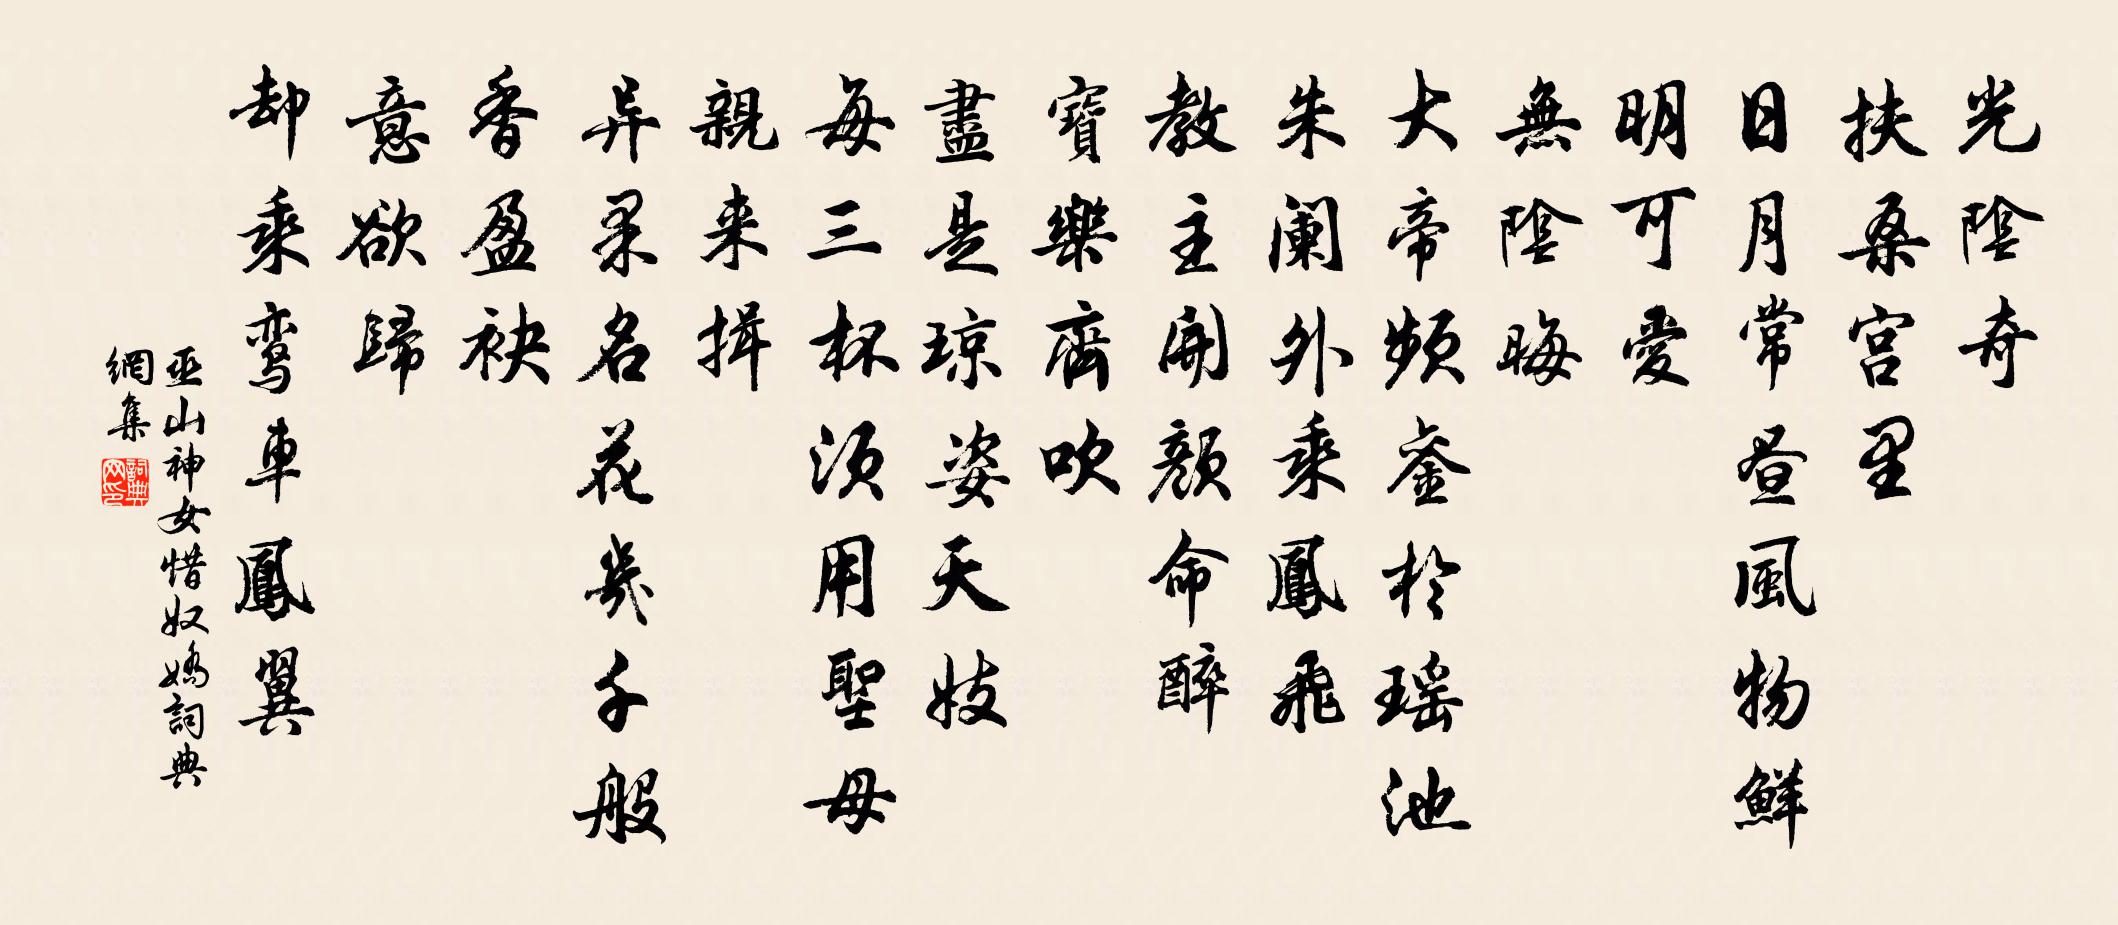 光陰奇
扶桑宮里
日月常昼風物鮮
明可愛
無陰晦
大帝頻鉴於瑶池
朱阑外乘鳳飛
教主開顔命醉
寶樂齊吹
盡是琼姿天妓
每三杯须用聖母
親来揖
异果名花幾千般
香盈袂
意欲歸
却乘鸾車鳳翼
巫山神女惜奴嬌詞典
網集
詞典网印